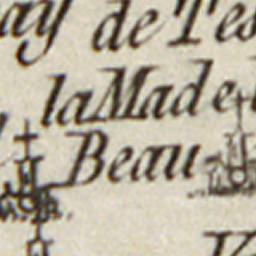 ay de Tes
la Made
Beau-